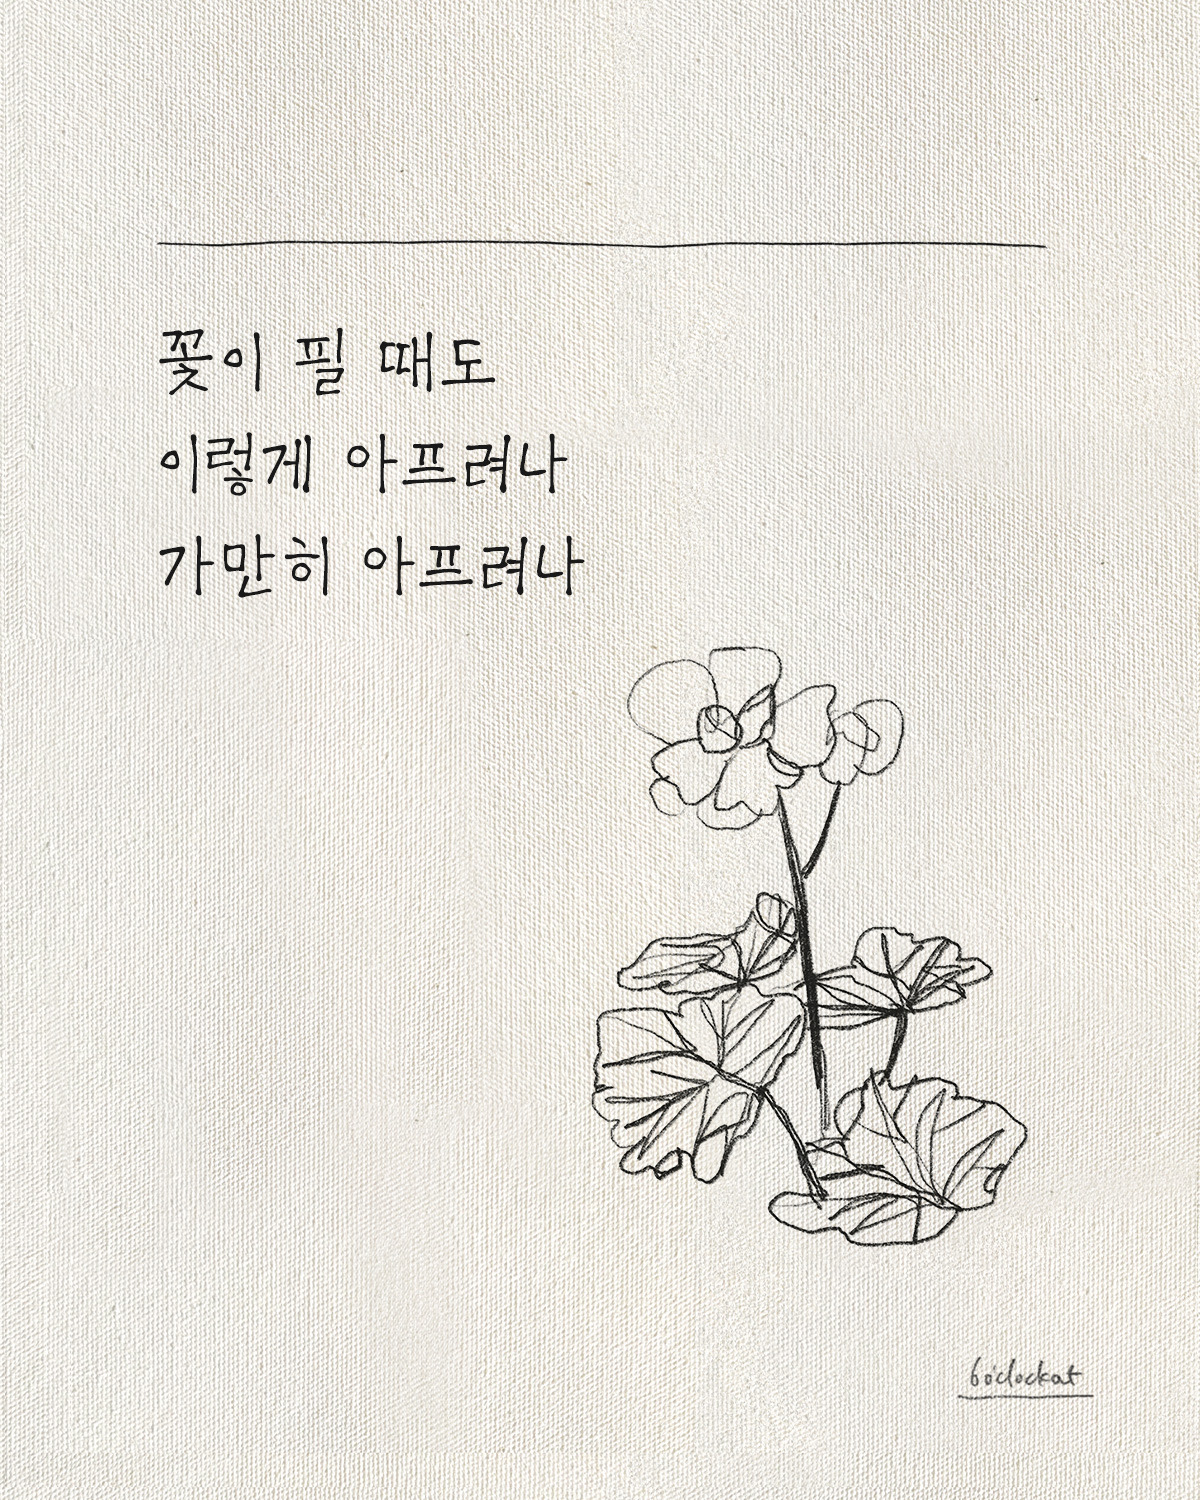 꽃이 필 때도
이렇게 아프려나
가만히 아프려나
6o'clockat